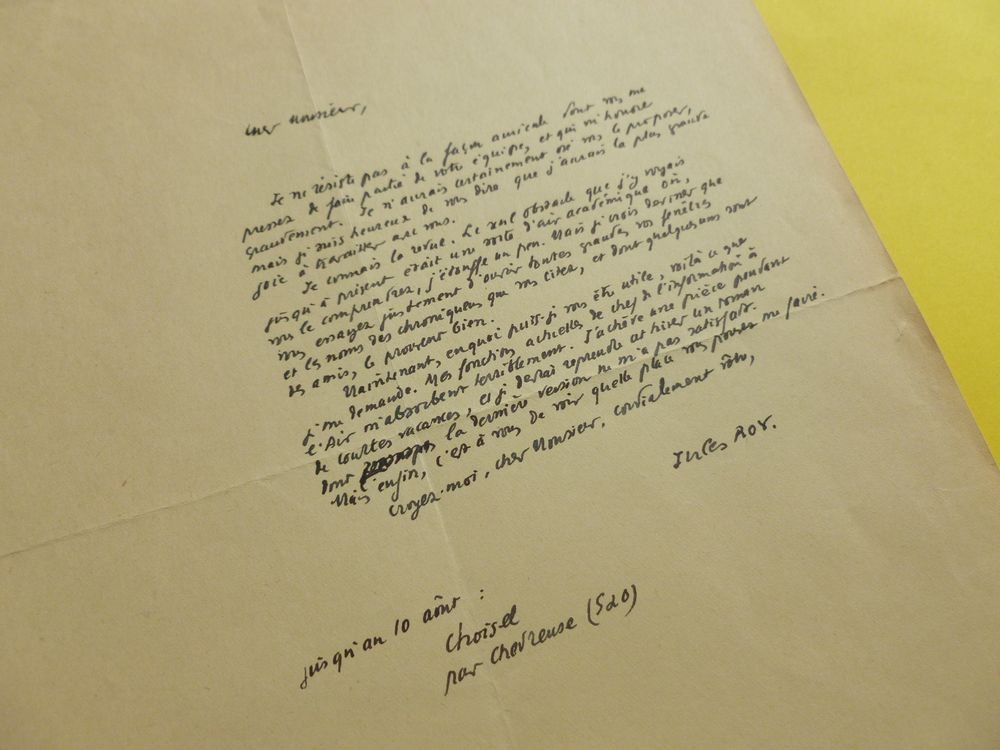 Cher Monsieur,
Je ne résiste pas à la façon amicale dont vous me
pressez de faire partie de votre équipe, et qui m'honore
grandement. Je n'aurais certainement osé vous le proposer,
mais je suis heureux de vous dire que j'aurais la plus grande
joie à travailler avec vous.
Je connais la revue. Le seul obstacle que j'y voyais
jusqu'à présent était une sorte d'air académique où,
vous le comprendrez, j'étouffe un peu. Mais je crois deviner que
vous essayez justement d'ouvrir toutes grandes vos fenêtres
et les noms des chroniqueurs que vous citez, et dont quelques uns sont
des amis, le prouvent bien.
Maintenant, en quoi puis-je vous être utile, voilà ce que
je me demande. Mes fonctions actuelles de chef de l'information à
l'Air m'absorbent terriblement. J'achève une pièce pendant
de courtes vacances, et je devrai reprendre cet hiver un roman
dont la dernière version ne m'a pas satisfait.
Mais enfin, c'est à vous de voir quelle place vous pouvez me faire.
Croyez-moi, cher Monsieur, cordialement vôtre,
Jules Roy.
jusqu'au 10 août :
Choisel
par Chevreuse (S&O)